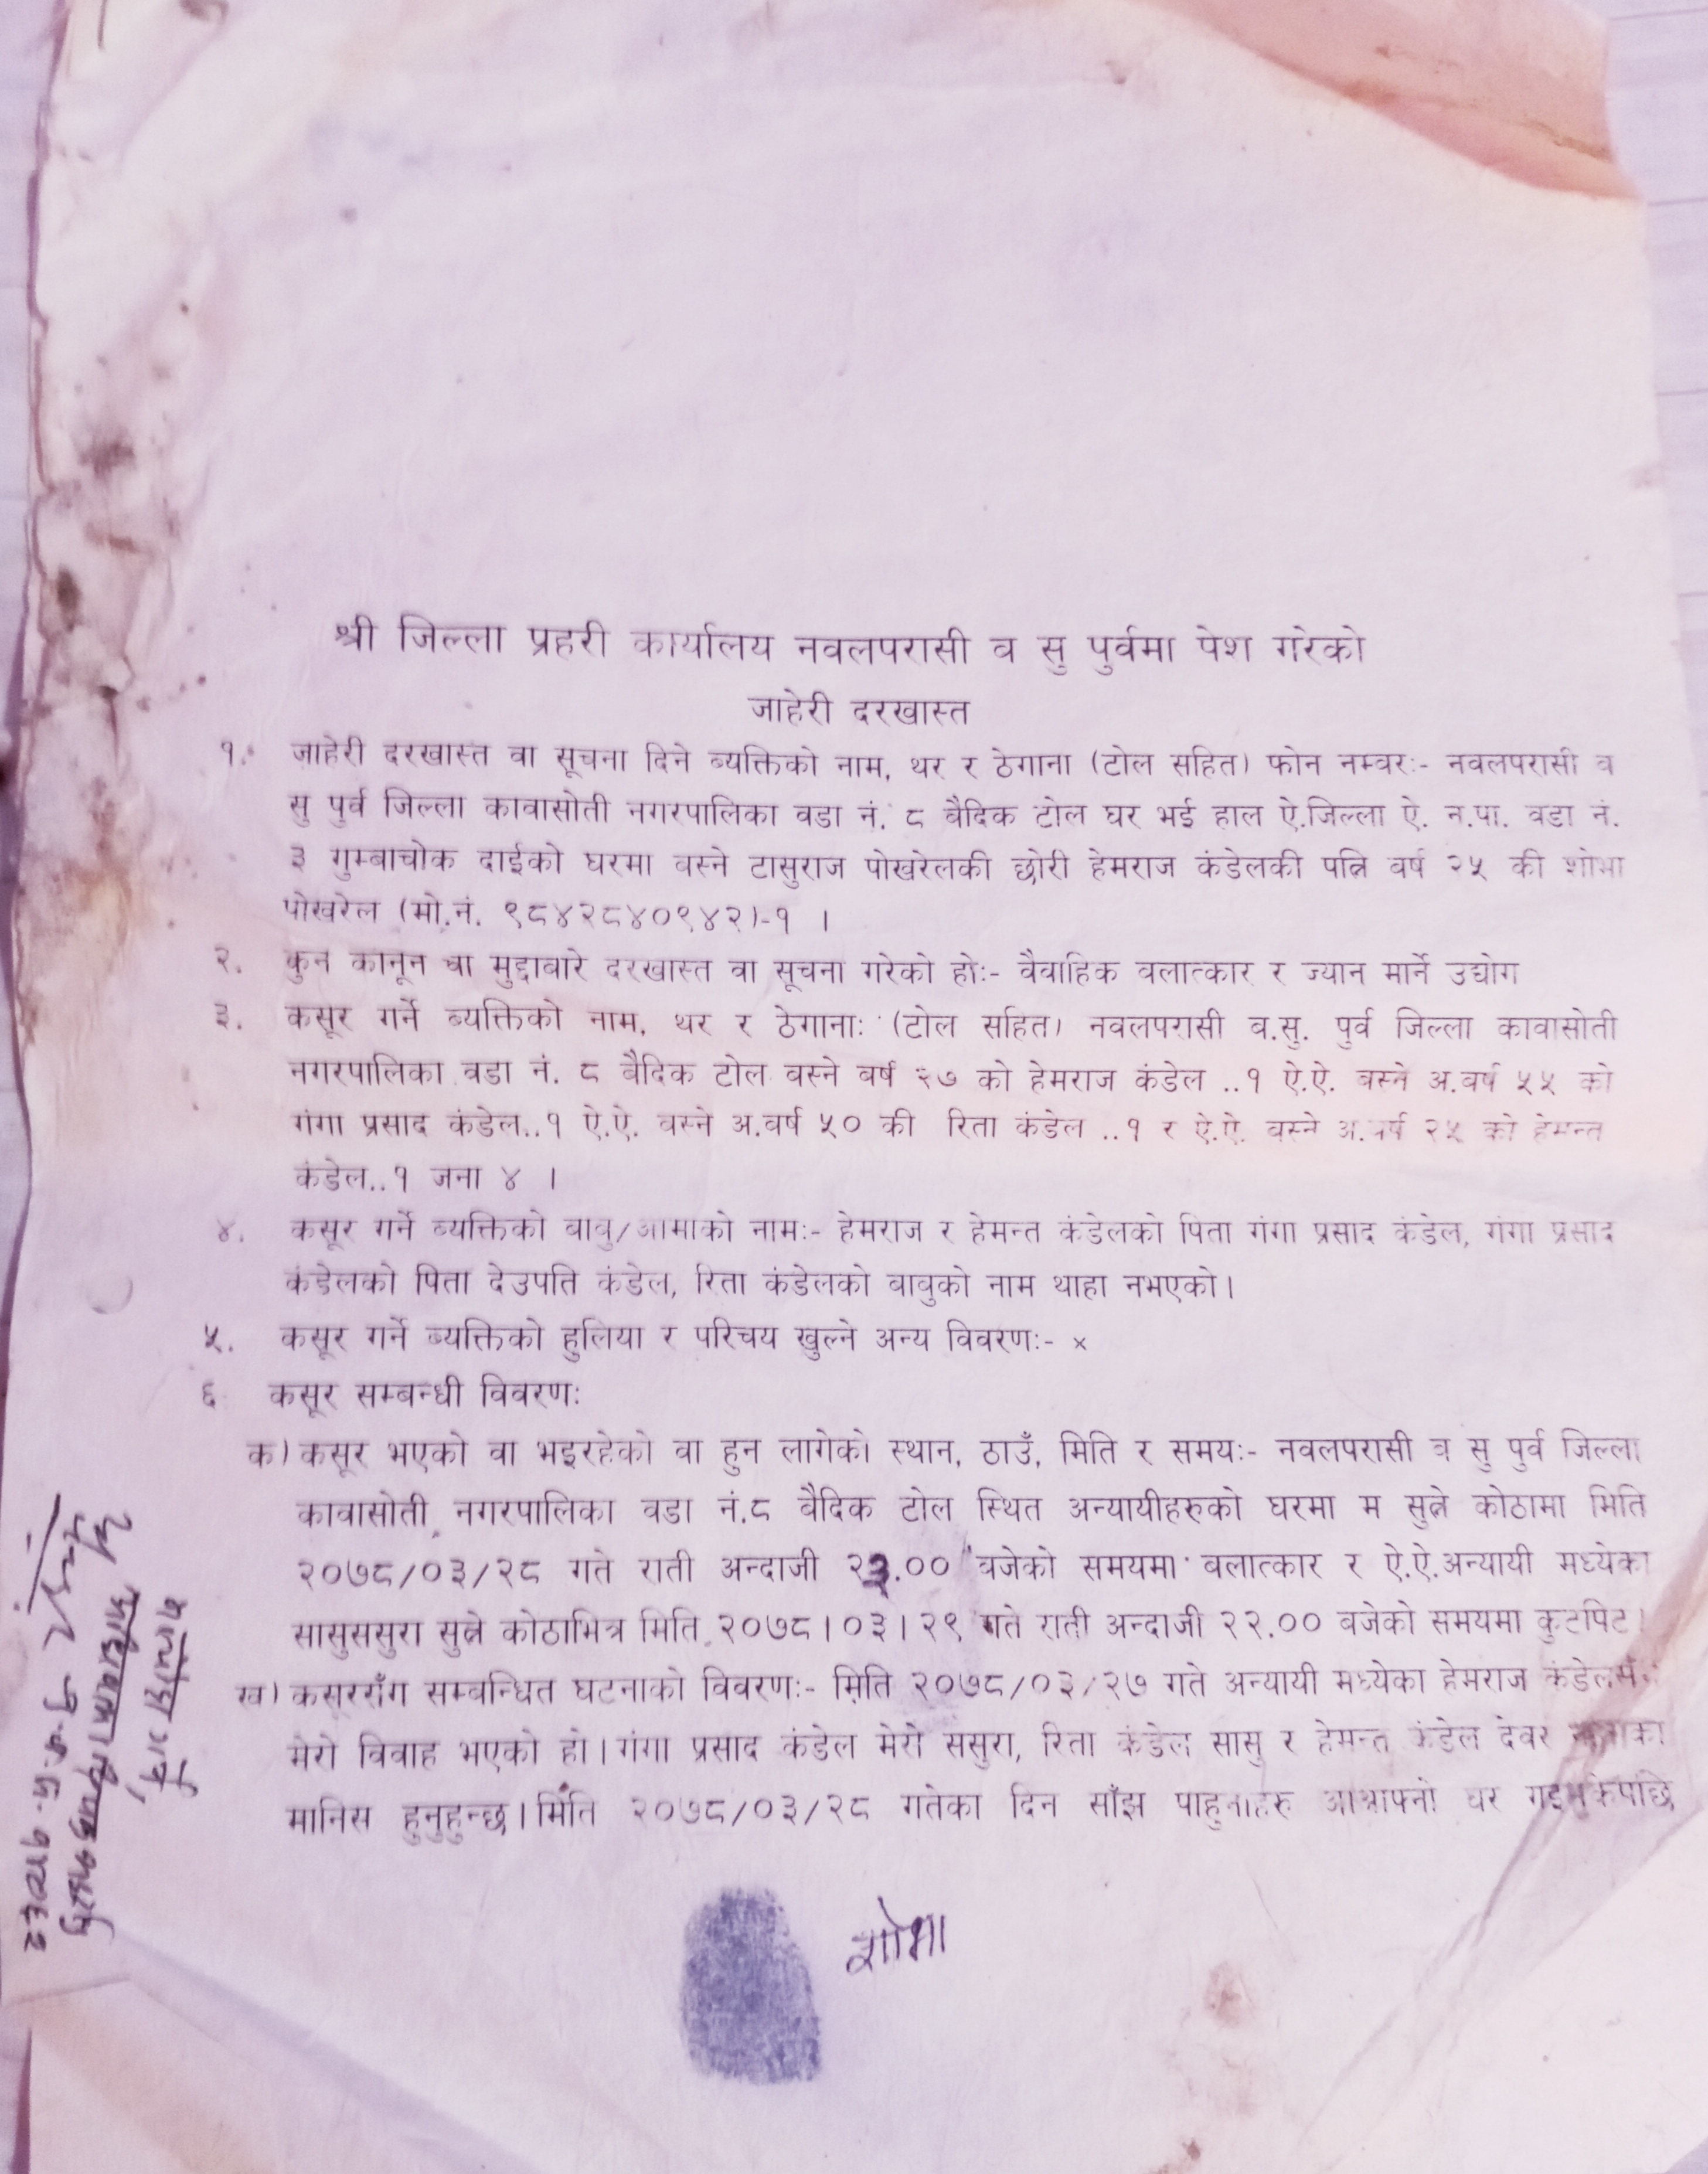 श्री जिल्ला प्रहरी कार्यालय नवलपरासी व सु पुर्वमा पेश गरेको
जाहेरी दरखास्त
१. जाहेरी दरखास्त वा सूचना दिने ब्यक्तिको नाम, थर र ठेगाना (टोल सहित) फोन नम्वरः- नवलपरासी व
सु पुर्व जिल्ला कावासोती नगरपालिका वडा नं. ८ बैदिक टोल घर भई हाल ऐ.जिल्ला ऐ. न.पा. वडा नं.
३ गुम्बाचोक दाईको घरमा वस्ने टासुराज पोखरेलकी छोरी हेमराज कंडेलकी पत्नि वर्ष २५ की शोभा
पोखरेल (मो.नं. ९८४२८४०९४२)-१ ।
२. कुन कानून वा मुद्दाबारे दरखास्त वा सूचना गरेको होः- वैवाहिक वलात्कार र ज्यान मार्ने उद्योग
३. कसूर गर्ने ब्यक्तिको नाम, थर र ठेगानाः (टोल सहित) नवलपरासी ब.सु. पुर्व जिल्ला कावासोती
नगरपालिका वडा नं. ८ बैदिक टोल बस्ने बर्ष २७ को हेमराज कंडेल ..१ ऐ.ऐ. बस्ने अ.बर्ष ५५ को
गंगा प्रसाद कंडेल..१ ऐ.ऐ. वस्ने अ.वर्ष ५० की रिता कंडेल ..१ र ऐ.ऐ. वस्ने अ.वर्ष २५ को हेमन्त
कंडेल..१ जना ४ ।
४. कसूर गर्ने ब्यक्तिको बाबु/आमाको नामः- हेमराज र हेमन्त कंडेलको पिता गंगा प्रसाद कंडेल, गंगा प्रसाद
कंडेलको पिता देउपति कंडेल, रिता कंडेलको बाबुको नाम थाहा नभएको।
५. कसूर गर्ने ब्यक्तिको हुलिया र परिचय खुल्ने अन्य विवरणः- ×
६ कसूर सम्बन्धी विवरणः
क) कसूर भएको वा भइरहेको वा हुन लागेको स्थान, ठाउँ, मिति र समयः- नवलपरासी ब सु पुर्व जिल्ला
कावासोती नगरपालिका वडा नं.८ बैदिक टोल स्थित अन्यायीहरुको घरमा म सुत्ने कोठामा मिति
२०७८/०३/२८ गते राती अन्दाजी २३.०० बजेको समयमा बलात्कार र ऐ.ऐ.अन्यायी मध्येका
सासुससुरा सुत्ने कोठाभित्र मिति २०७८।०३।२९ गते राती अन्दाजी २२.०० बजेको समयमा कुटपिट।
ख) कसूरसँग सम्बन्धित घटनाको विवरणः- मिति २०७८/०३/२७ गते अन्यायी मध्येका हेमराज कंडेलसँग
मेरो विवाह भएको हो। गंगा प्रसाद कंडेल मेरो ससुरा, रिता कंडेल सासु र हेमन्त कंडेल देवर
मानिस हुनुहुन्छ। मिति २०७८/०३/२८ गतेका दिन साँझ पाहुनाहरु आआफ्नो घर गइसकेपछि
शोभा